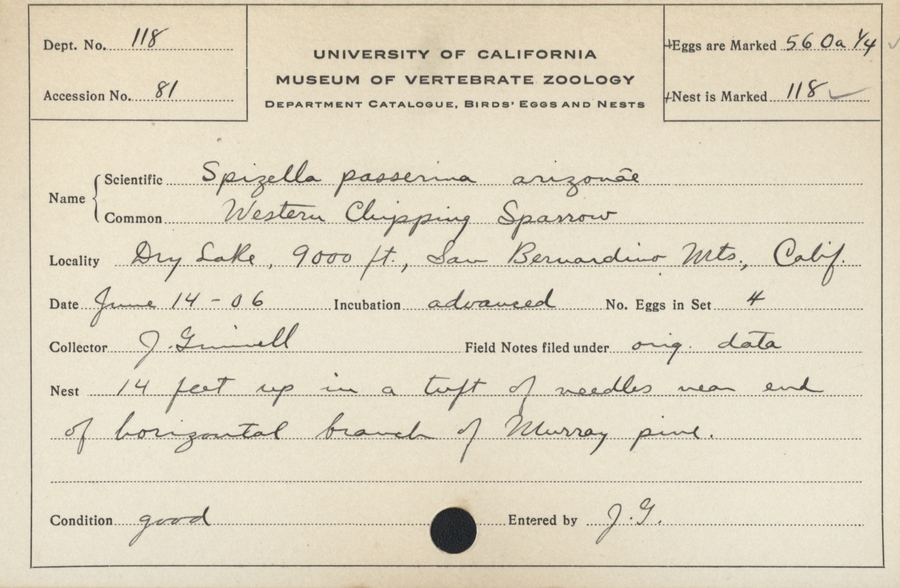 Dept. No. 118
Accession No. 81
UNIVERSITY OF CALIFORNIA
MUSEUM OF VERTEBRATE ZOOLOGY
DEPARTMENT CATALOGUE, BIRDS' EGGS AND NESTS
Eggs are Marked 560a 1/4
Nest is Marked 118 ✓
Name
Scientific Spizella passerina arizonæ
Common Western Chipping Sparrow
Locality Dry Lake, 9000 ft., San Bernardino Mts., Calif.
Date June 14-06 Incubation advanced No. Eggs in Set 4
Collector J. Grinnell Field Notes filed under orig. data
Nest 14 feet up in a tuft of needles near end
of horizontal branch of Murray pine.
Condition good Entered by J.G.